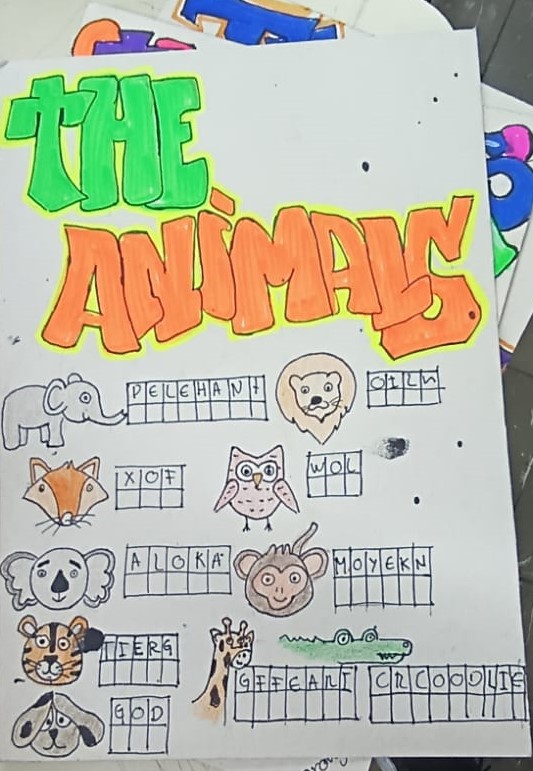 THE
ANIMALS
PELEHANT
OILN
XOF
WOL
ALOKA
MOYEKN
TIERG
GFFEARI
CRCOODLIE
GOD